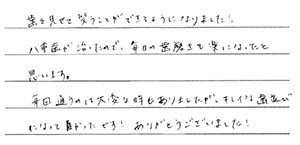 歯を見せて笑うことができるようになりました!
八重歯が治ったので、毎日の歯磨きも楽になったと
思います。
毎回通うのは大変な時もありましたが、キレイな歯並び
になって良かったです! ありがとうございました!